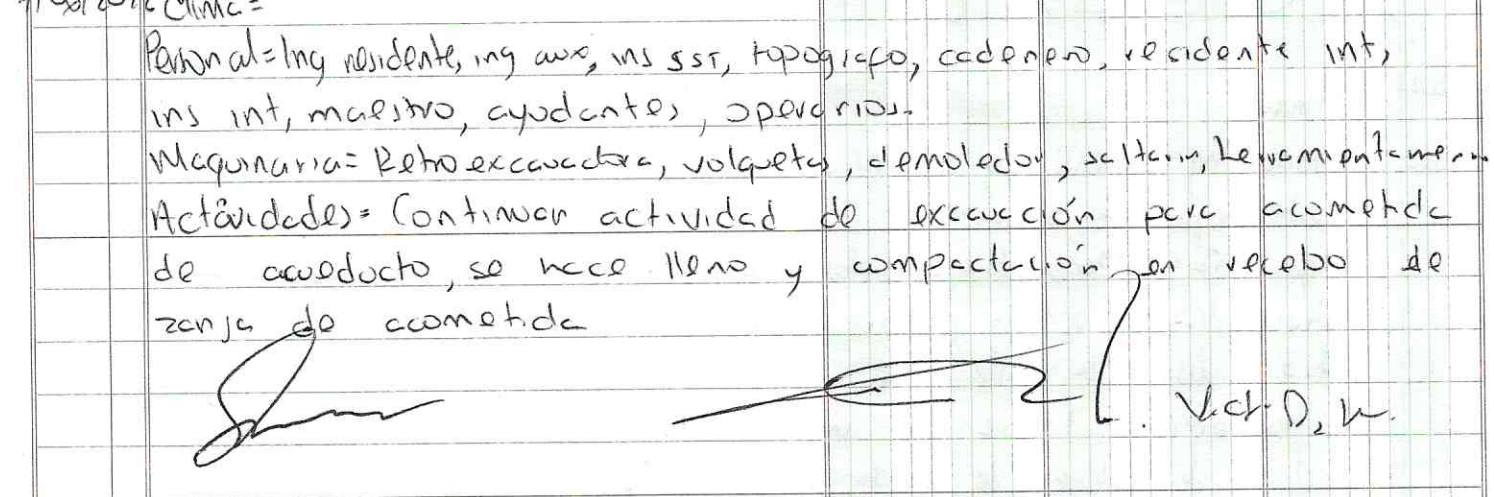 Clima=
Personal=Ing residente, ing aux, ins SST, topografo, cadenero, residente int,
ins int, maestro, ayudantes, operarios.
Maquinaria= Retroexcavadora, volquetas, demoledor, saltarin,
Actividades= Continuan actividad de excavación para acometida
de acueducto, se hace lleno y compactación en recebo de
zanja de acometida